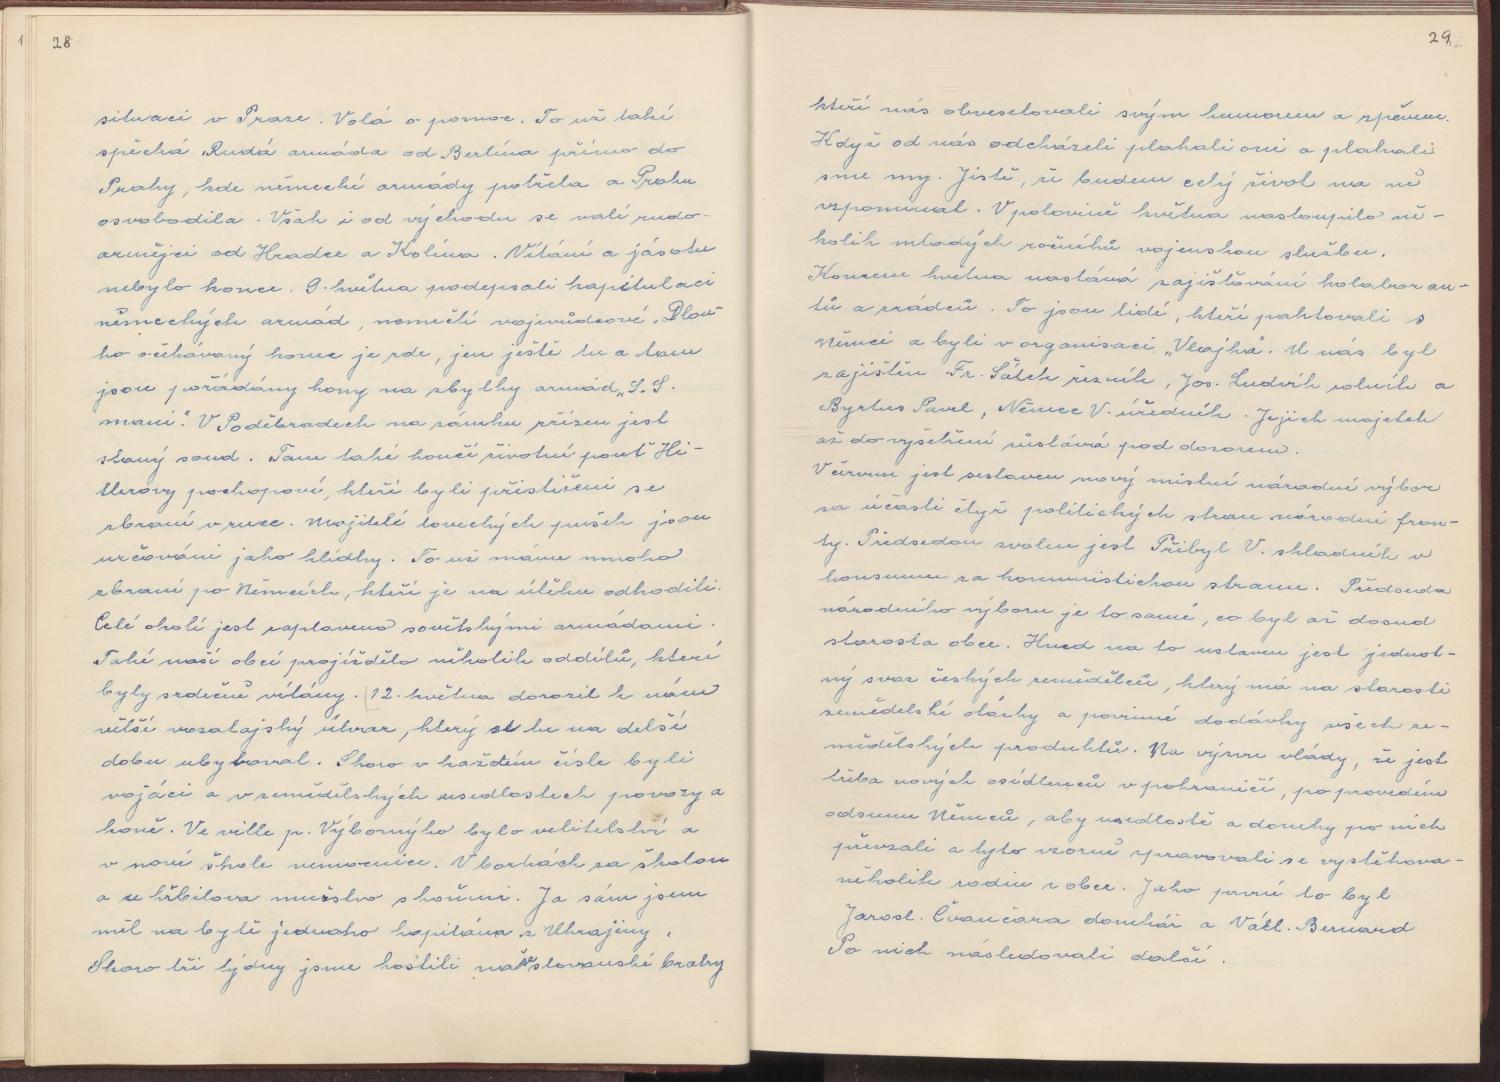 28
situaci v Praze. Volá o pomoc. To už také
spěchá Rudá armáda od Berlína přímo do
Prahy, kde německé armády potřela a Prahu
osvobodila. Však i od východu se valí rudo-
armějci od Hradce a Kolína. Vítání a jásotu
nebylo konce. 9. května podepsali kapitulaci
německých armád, nemečtí vojevůdcové. Dlou-
ho očekávaný konec je zde, jen ještě tu a tam
jsou pořádány hony na zbytky armád „S.S.
mani". V Poděbradech na zámku zřízen jest
stanný soud. Tam také končí životní pouť Hi-
tlerovy pochopové, kteří byli přistiženi se
zbraní v ruce. Majitelé loveckých pušek jsou
určováni jako hlídky. To už máme mnoho
zbraní po Němcích, kteří je na útěku odhodili.
Celé okolí jest zaplaveno sovětskými armádami.
Také naší obcí projíždělo několik oddílů, které
byly srdečně vítány. 12. května dorazil k nám
větší vozatajský útvar, který se tu na delší
dobu ubytoval. Skoro v každém čísle byli
vojáci a v zemědělských usedlostech povozy a
koně. Ve ville p. Výborného bylo velitelství a
v nové škole nemocnice. V borkách za školou
a u hřbitova mužstvo s koňmi. Ja sám jsem
měl na bytě jednoho kapitána z Ukrajiny.
Skoro tři týdny jsme hostili naše slovanské bratry
29
kteří nás obveselovali svým humorem a zpěvem.
Když od nás odcházeli plakali oni a plakali
sme my. Jistě, že budem celý život na ně
vzpomínat. V polovině května nastoupilo ně-
kolik mladých ročníků vojenskou službu.
Koncem května nastává zajišťování kolaboran-
tů a zrádců. To jsou lidé, kteří paktovali s
Němci a byli v organisaci „Vlajka". U nás byl
zajištěn Fr. Šátek řezník, Jos. Ludvík rolník a
Byrtus Pavel, Němec V. úředník. Jejich majetek
až do vyšetření zůstává pod dozorem.
V červnu jest sestaven nový místní národní výbor
za účasti čtyř politických stran národní fron-
ty. Předsedou zvolen jest Přibyl V. skladník v
konsumu za komunistickou stranu. Předseda
národního výboru je to samé, co byl až dosud
starosta obce. Hned na to ustaven jest jednot-
ný svaz českých zemědělců, který má na starosti
zemědělské otázky a povinné dodávky všech ze-
mědělských produktů. Na výzvu vlády, že jest
třeba nových osídlenců v pohraničí, po provedém
odsunu Němců, aby usedlosti a domky po nich
převzali a tyto vzorně spravovali se vystěhova-
několik rodin z obce. Jako první to byl
Jarosl. Čvančara domkář a Václ. Bernard
Po nich následovali další.